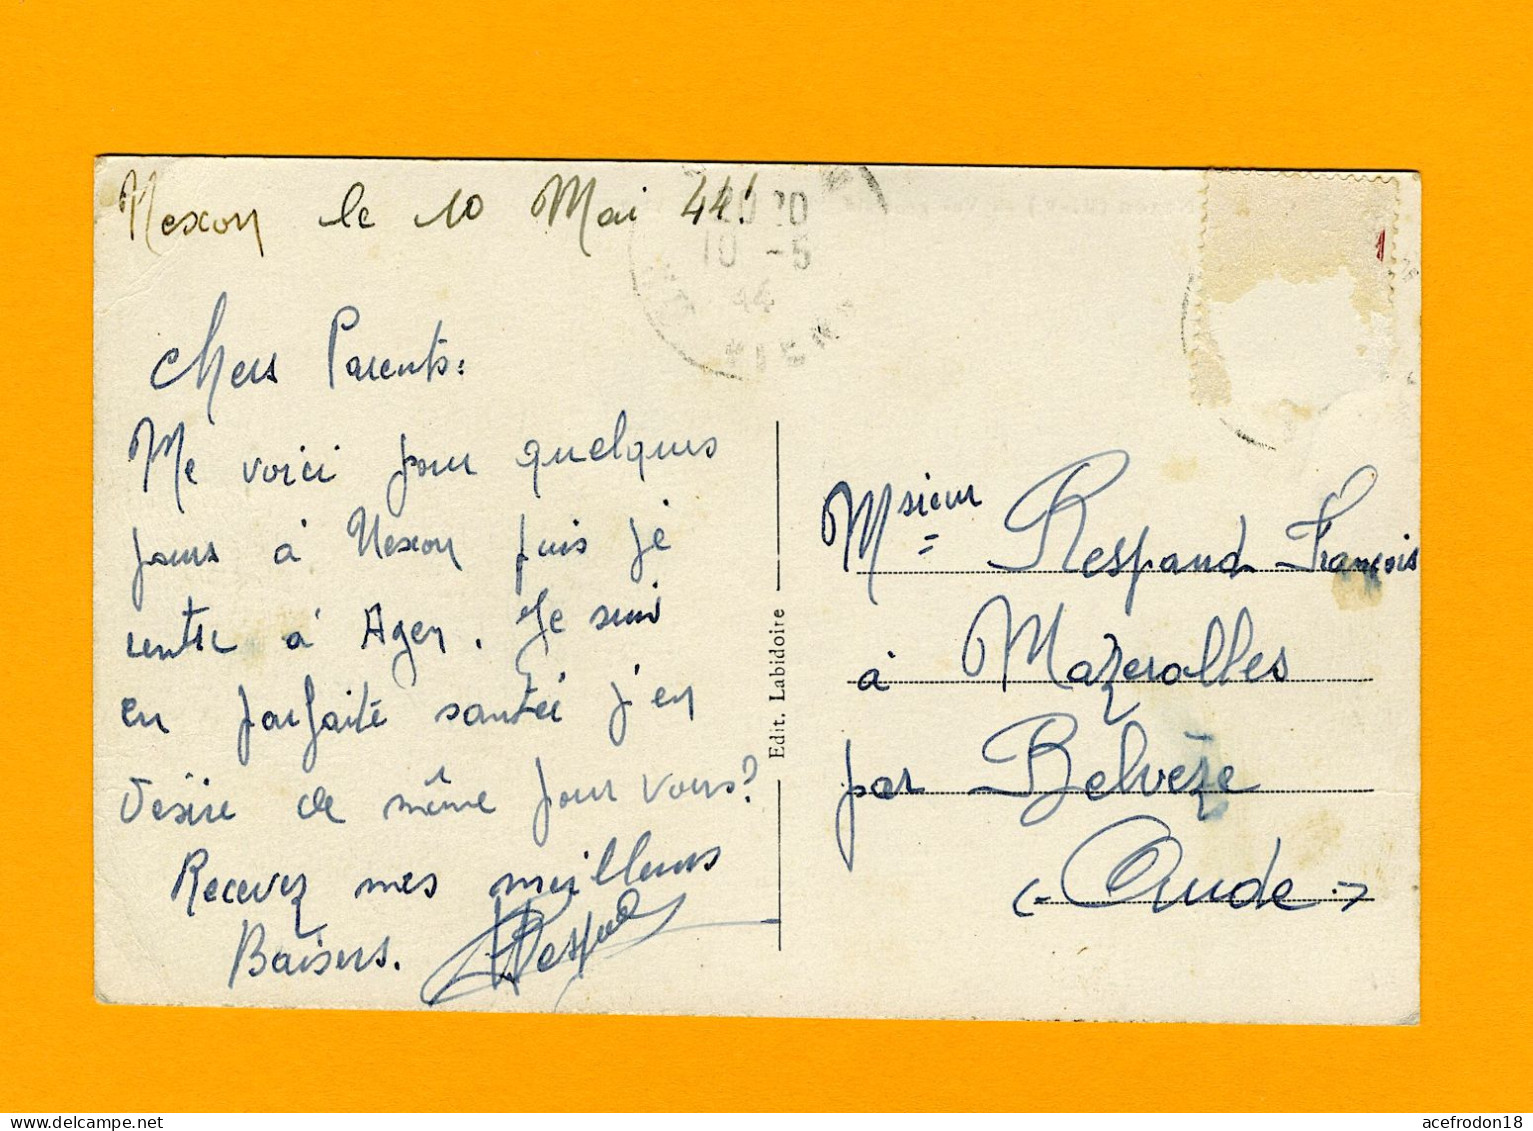 Nexon le 10 Mai 44!
20 20
10 - 5
44
VIENNE
Chers Parents:
Me voici pour quelques
jours à Nexon puis je
rentre à Agen. Je suis
en parfaite santée j'en
désire de même pour vous?
Recevez mes meilleurs
Baisers. Respaud
Edit. Labidoire
1
Msieur Respaud François
à Mazerolles
par Belvèze
(- Aude -)
acefrodon18